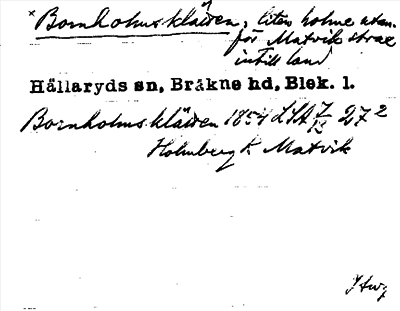 *Bornholmskläwen, liten holme utan-
för Matvik strax
intill land
Hällaryds sn, Bräkne hd, Blek. l.
Bornholmskläwen 1854 LSA 27²
Holmberg k. Matvik